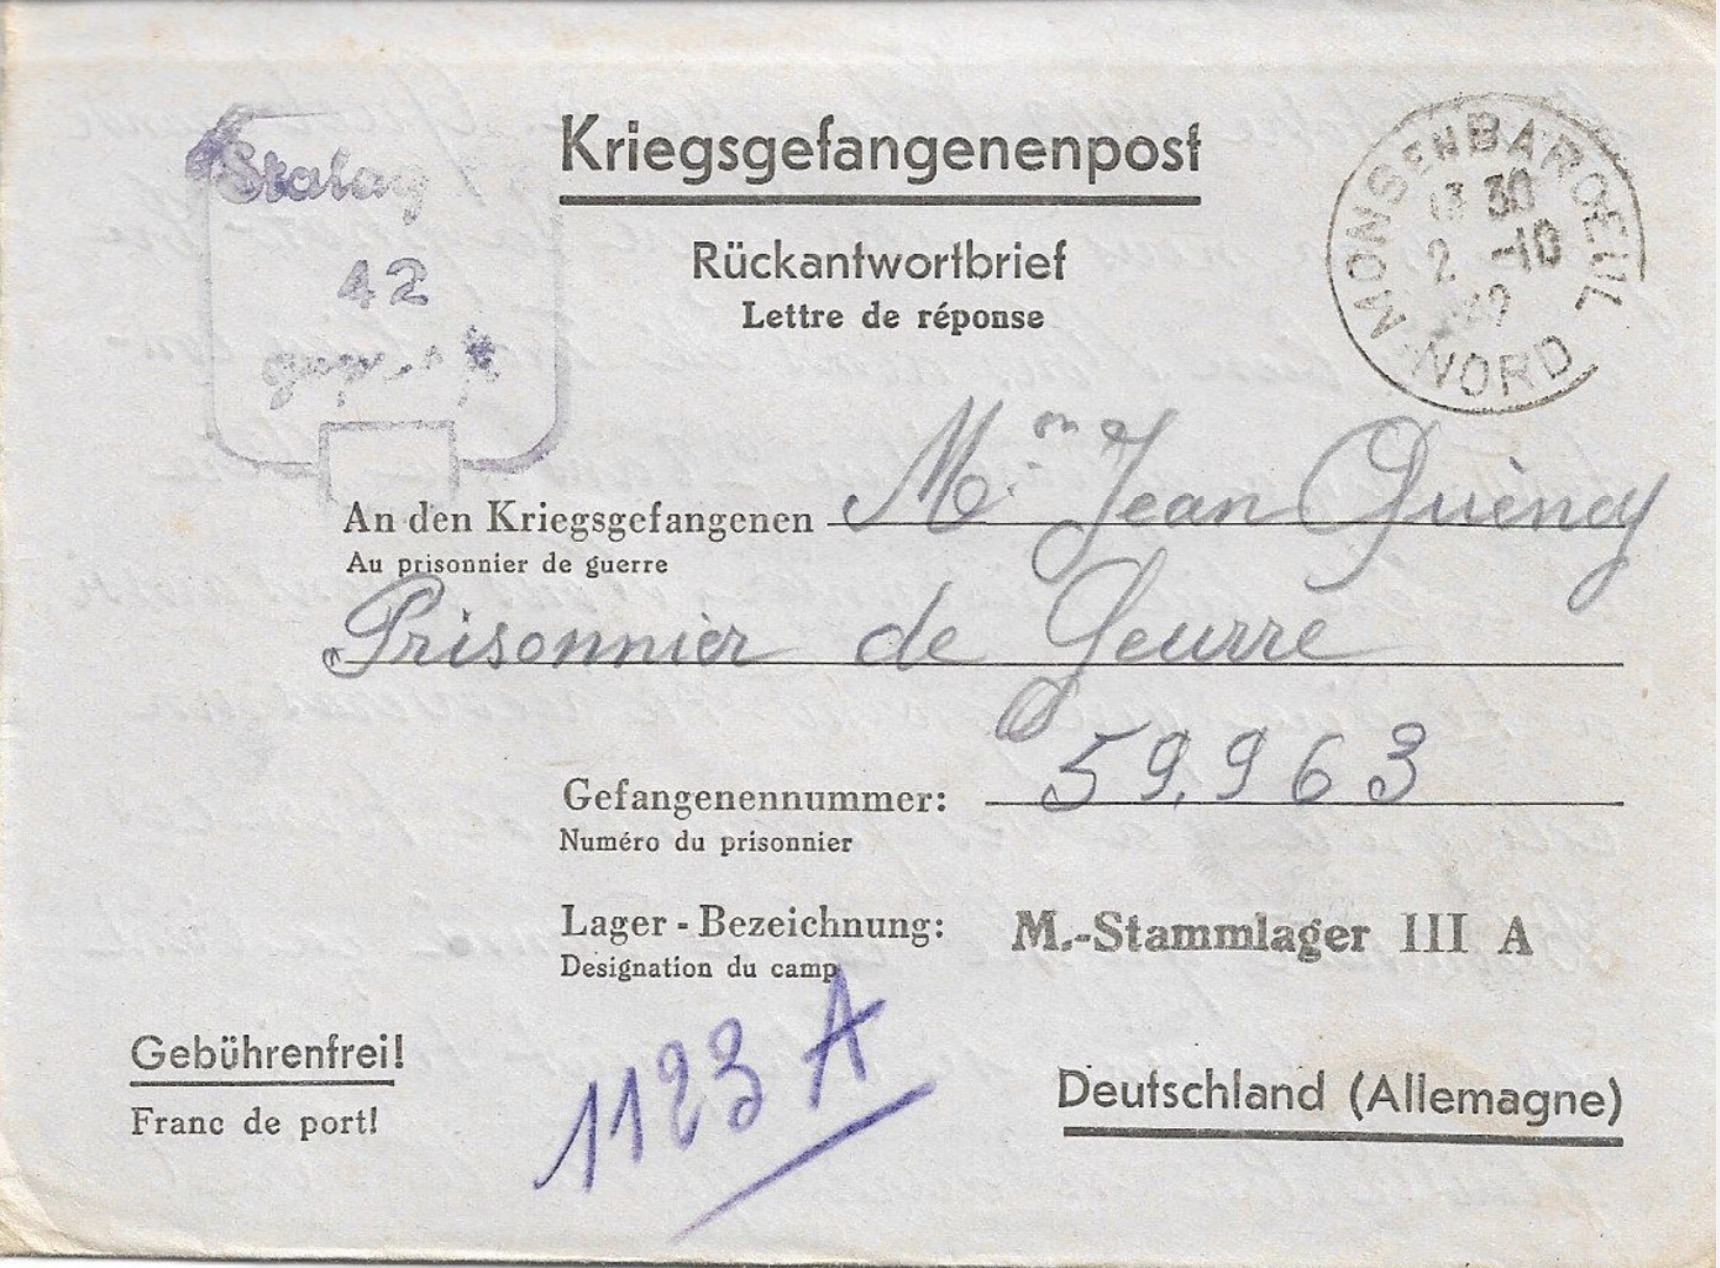 Kriegsgefangenenpost
Rückantwortbrief
Lettre de réponse
Stalag
42
MONS EN BAROEUL
13 30
2 -10
NORD
An den Kriegsgefangenen Mon Jean
Au prisonnier de guerre
Prisonnier de Geurre
Gefangenennummer: 59.963
Numéro du prisonnier
Lager - Bezeichnung: M.-Stammlager III A
Designation du camp
1123 A
Gebührenfrei!
Franc de port!
Deutschland (Allemagne)